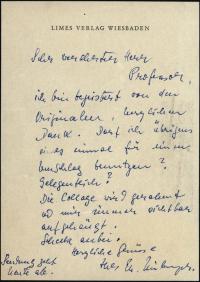 LIMES VERLAG WIESBADEN
Sehr verehrter Herr
Professor,
ich bin begeistert von den
Originalen, herzlichen
Dank. Darf ich übrigens
es einmal für einen
Umschlag benutzen?
Gelegentlich?
Die Collage wird gerahmt
und mir immer sichtbar
aufgehängt.
Scheck anbei.
Herzliche Grüsse
Ihr
Sendung geht
heute ab.